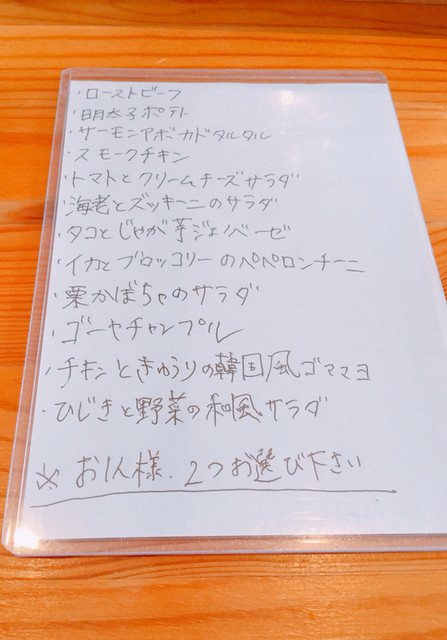 ・ローストビーフ
・明太子ポテト
・サーモンアボカドタルタル
・スモークチキン
・トマトとクリームチーズサラダ
・海老とズッキーニのサラダ
・タコとじゃが芋ジェノベーゼ
・イカとブロッコリーのペペロンチーニ
・栗かぼちゃのサラダ
・ゴーヤチャンプル
・チキンときゅうりの韓国風ゴママヨ
・ひじきと野菜の和風サラダ
※お1人様、2つお選び下さい